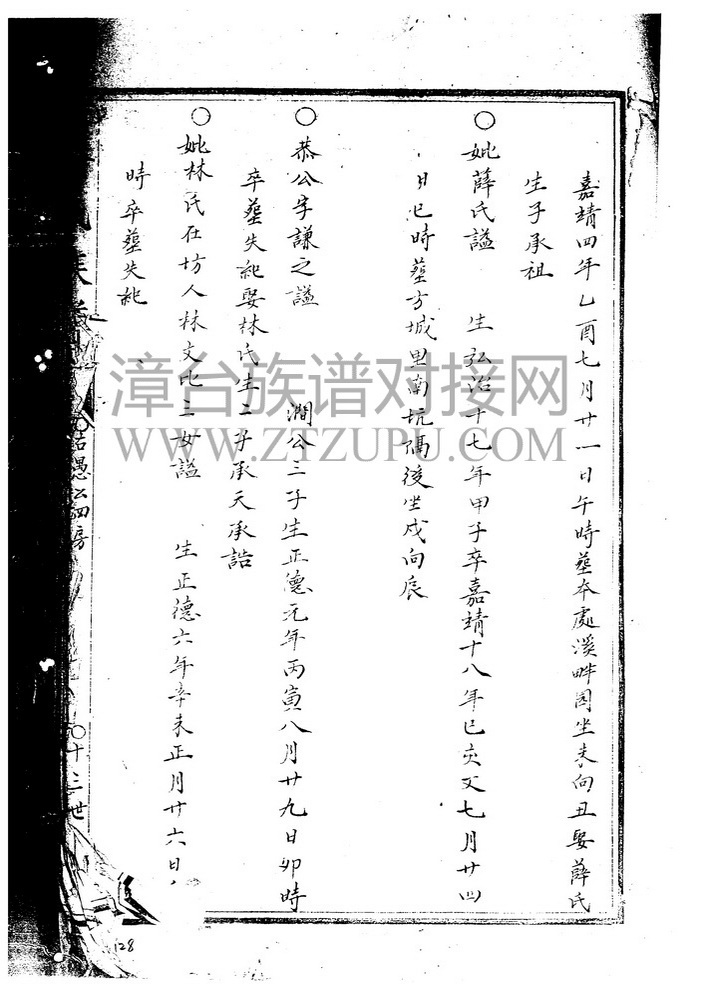 嘉靖四年乙酉七月廿一日午時墓本處溪畔園坐未向丑娶薛氏
生子承祖
○妣薛氏謚 生弘治十七年甲子卒嘉靖十八年己亥又七月廿四
日巳時墓方城里南坑 後坐戌向辰
○恭公字謙之謚 澗公三子生正德元年丙寅八月廿九日卯時
卒墓失紀娶林氏生二子承天承誥
○妣林氏在坊人林文 三女謚 生正德六年辛未正月廿六日
時卒墓失紀
愚公四房
○十三世
128
漳台族谱对接网
WWW.ZTZUPU.COM